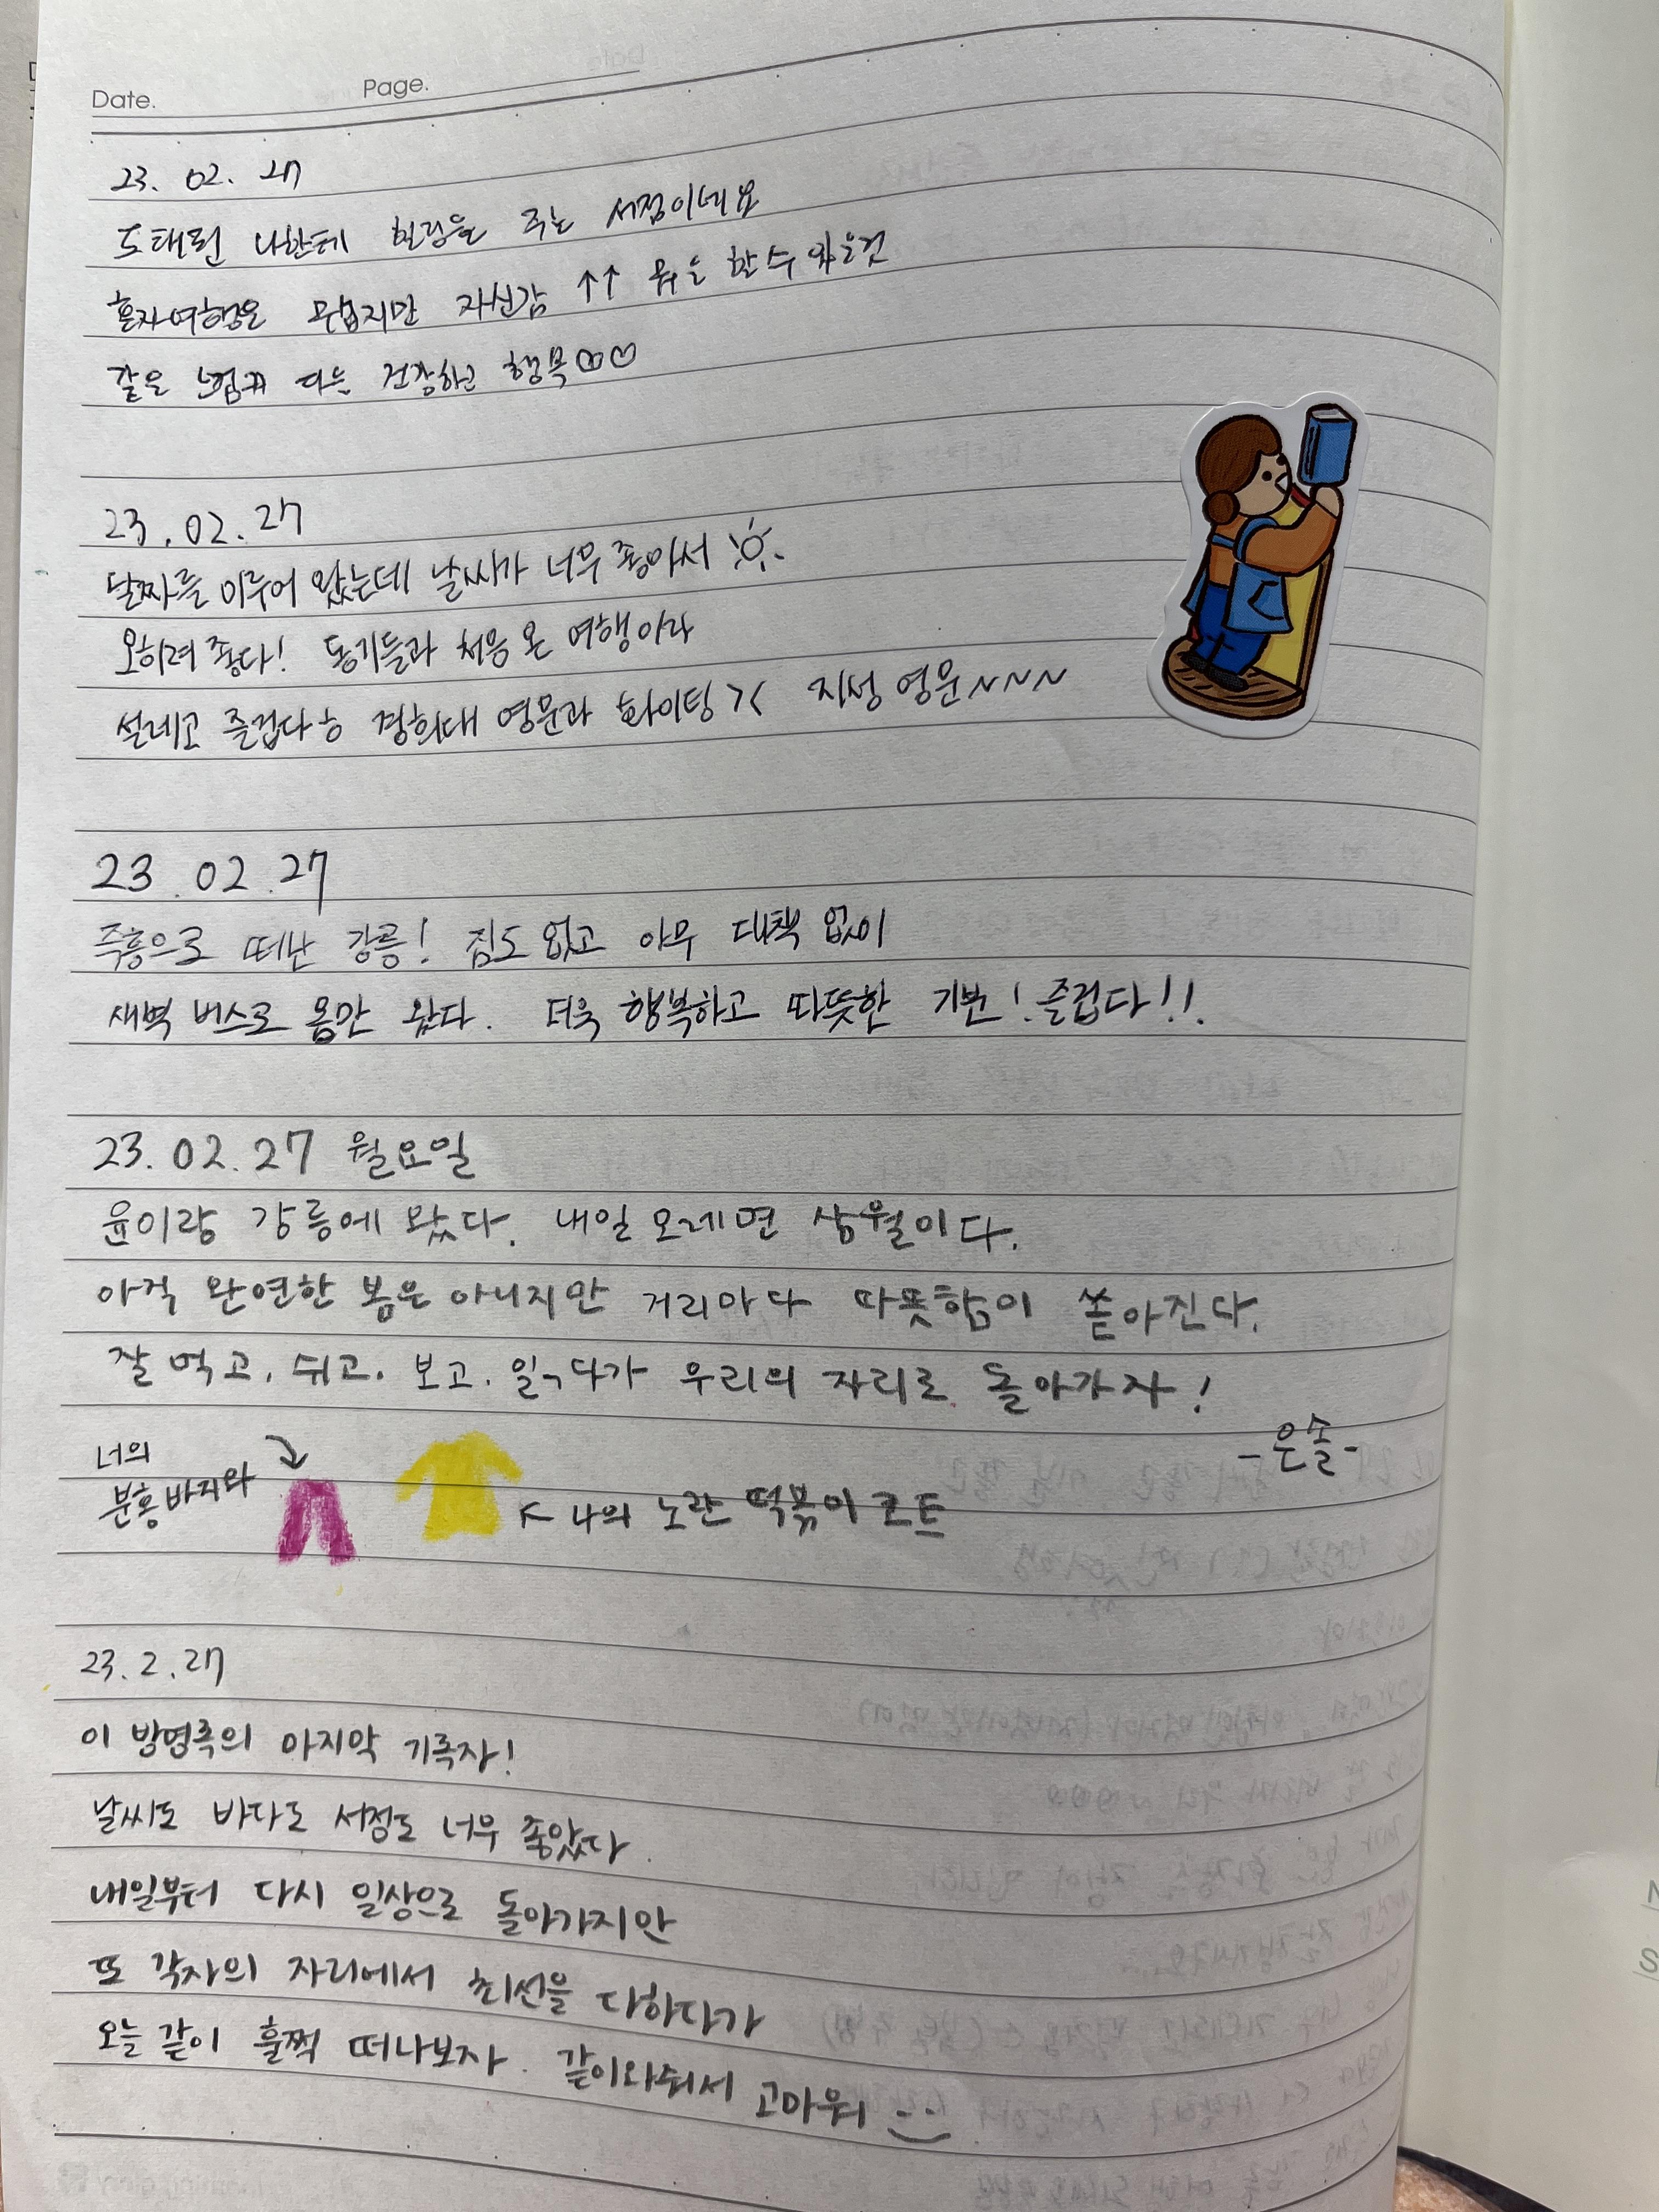 Date. Page.
23. 02. 27
도태된 나한테 힐링을 주는 서점이네요
혼자여행은 무섭지만 자신감 ↑↑ 뭐든 할수있을것
같은 느낌 다들 건강하고 행복♡♡
23.02.27
날짜를 미루어 왔는데 날씨가 너무 좋아서
오히려 좋다! 동기들과 처음 온 여행이라
설레고 즐겁다ㅎ 경희대 영문과 화이팅 >< 지성 영문~~~
23.02.27
즉흥으로 떠난 강릉! 짐도 없고 아무 대책 없이
새벽 버스로 몸만 왔다. 더욱 행복하고 따뜻한 기분! 즐겁다!!
23.02.27 월요일
윤이랑 강릉에 왔다. 내일 모레면 삼월이다.
아직 완연한 봄은 아니지만 거리마다 따뜻함이 쏟아진다.
잘 먹고, 쉬고, 보고, 읽다가 우리의 자리로 돌아가자!
-은솔-
너의
분홍바지와
나의 노란 떡볶이 코트
23.2.27
이 방명록의 마지막 기록자!
날씨도 바다도 서점도 너무 좋았다.
내일부터 다시 일상으로 돌아가지만
또 각자의 자리에서 최선을 다하다가
오늘 같이 훌쩍 떠나보자. 같이와줘서 고마워